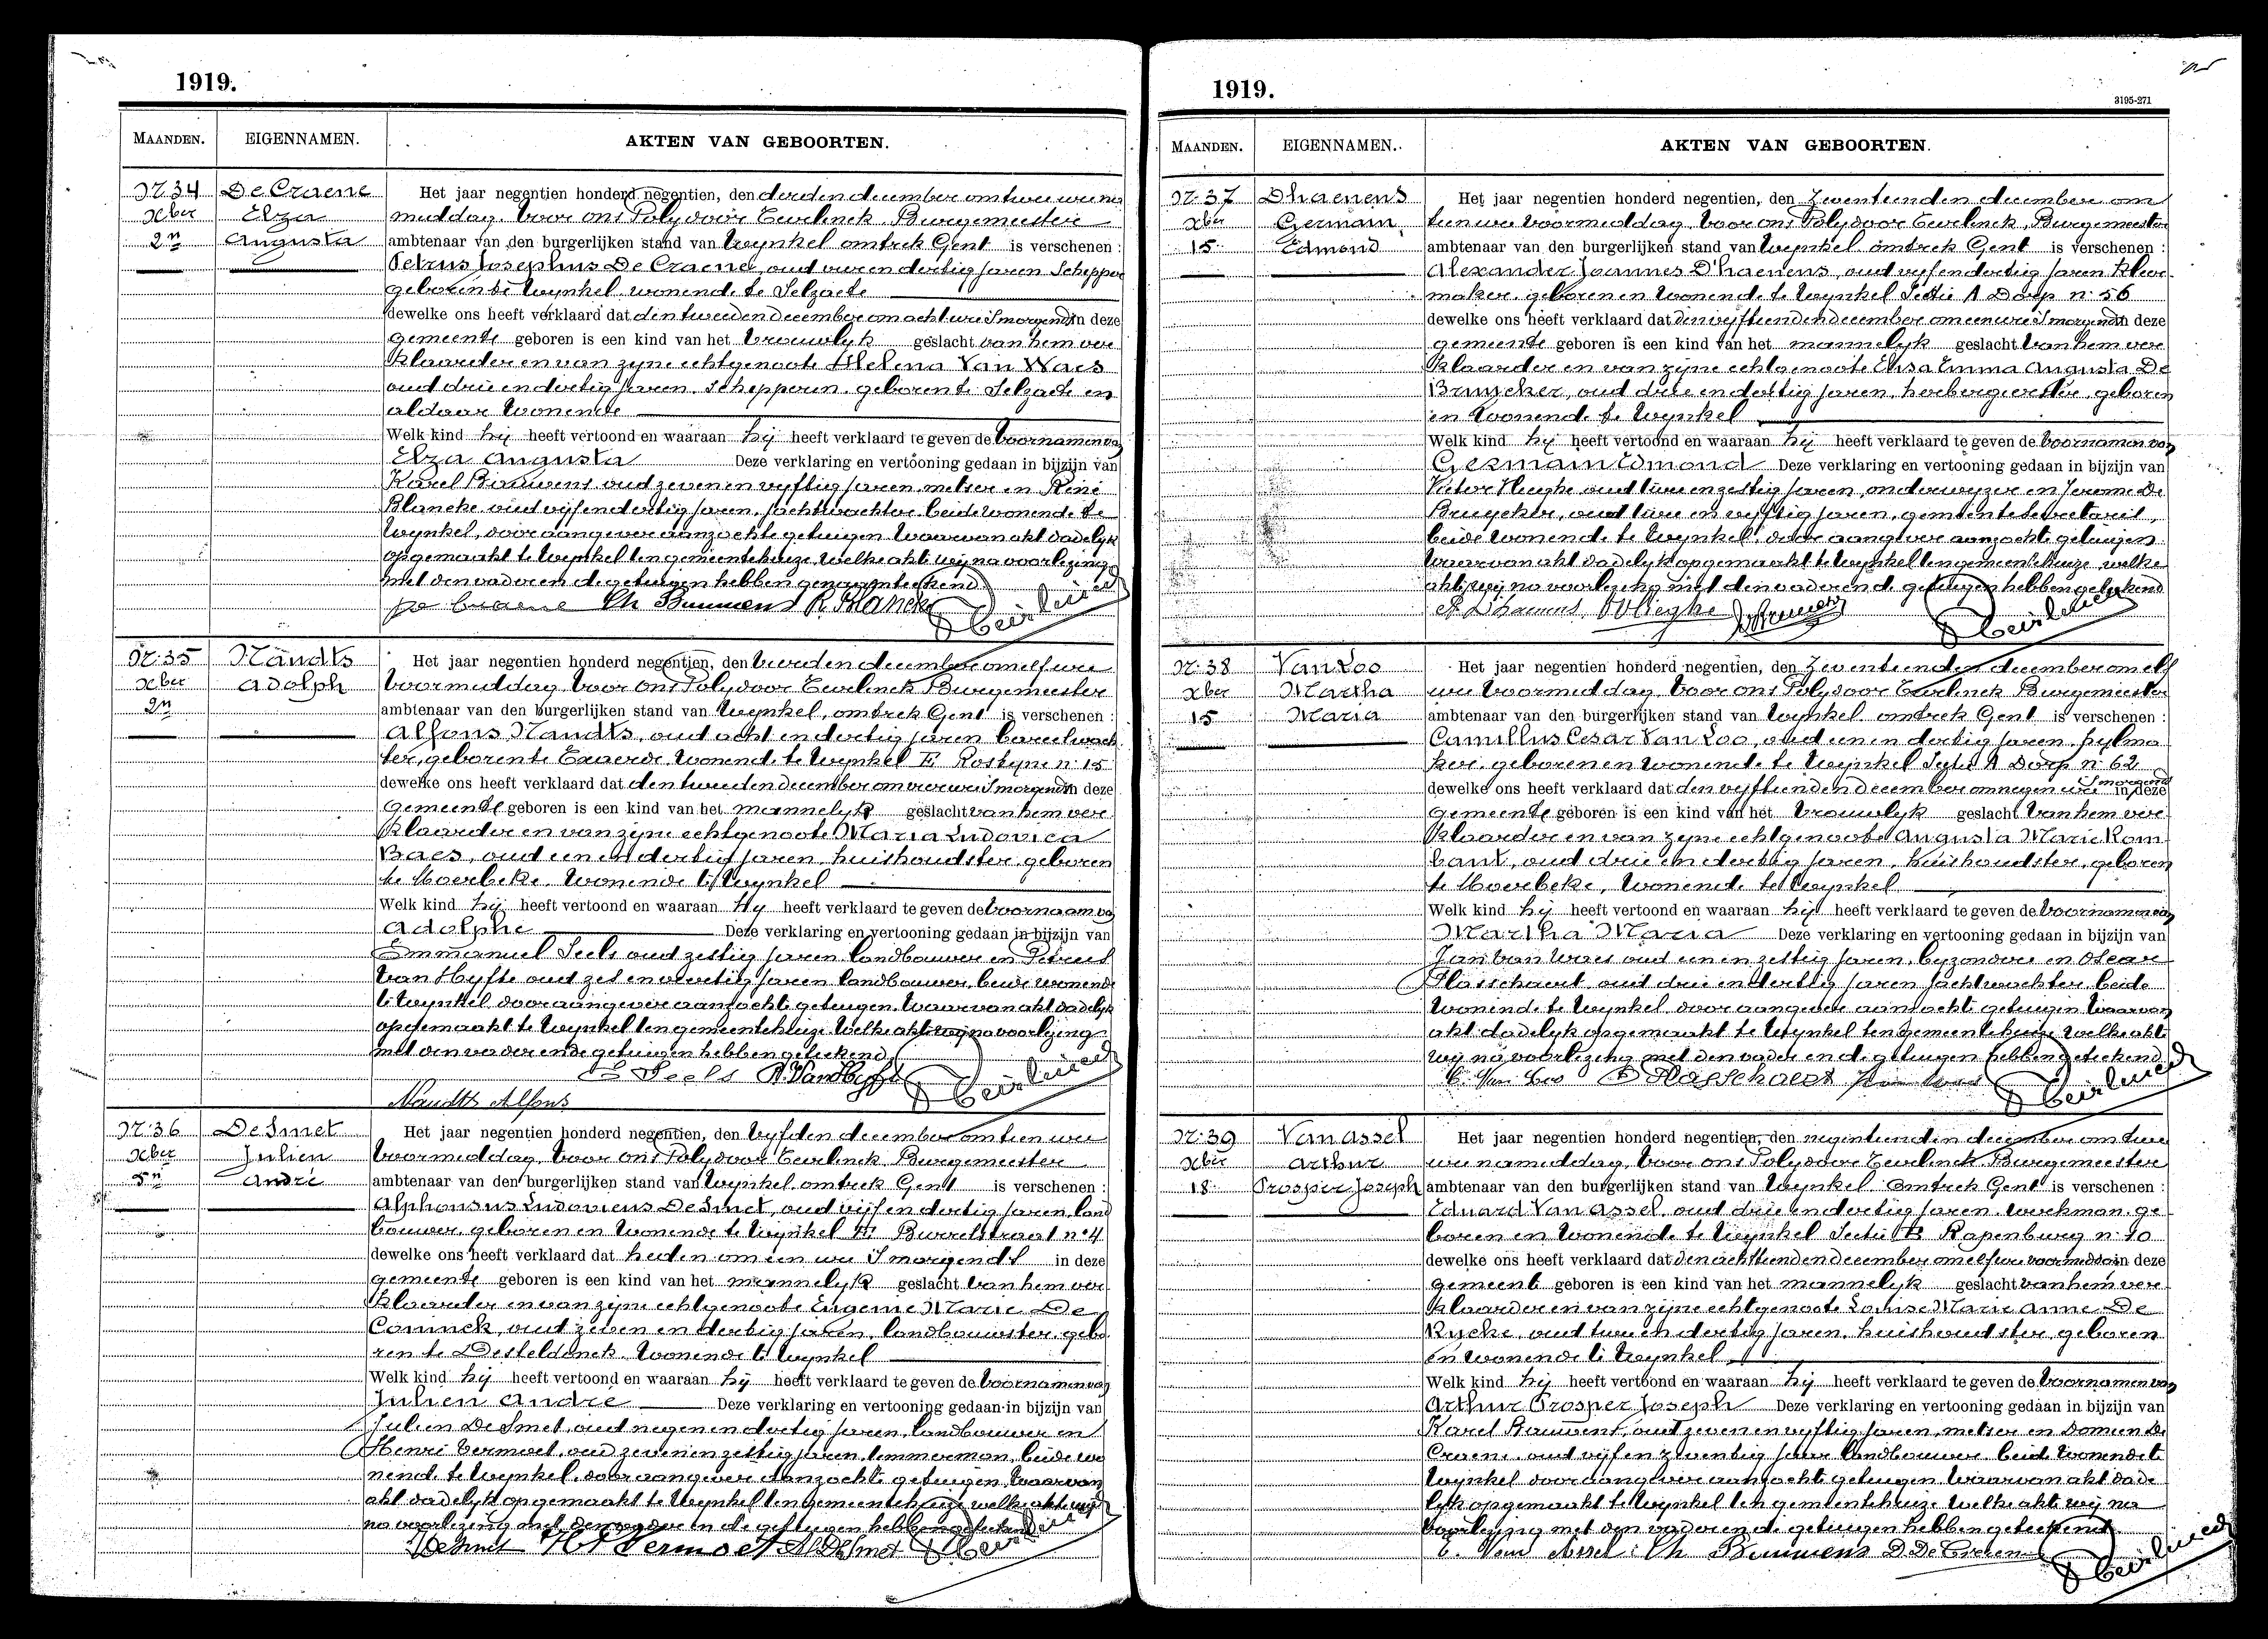 1919.
MAANDEN. EIGENNAMEN. AKTEN VAN GEBOORTEN.
N. 34 De Craene Het jaar negentien honderd negentien, den derden december om twee ure na
xber Elza middag voor ons Polydoor Beirlinck Burgemeester
2n Augusta ambtenaar van den burgerlijken stand van Wynkel omtrek Gent is verschenen :
Petrus Josephus De Craene, oud vier en dertig jaren Schepper
geboren te Wynkel wonende te Selzaete
dewelke ons heeft verklaard dat den tweeden december om acht ure 's morgends in deze
gemeente geboren is een kind van het vrouwelyk geslacht van hem ver
klaarder en van zyne echtgenoote Helena Van Waes
oud drie en dertig jaren Schepperin geboren te Selzaete en
aldaar wonende
Welk kind hij heeft vertoond en waaraan hij heeft verklaard te geven de voornamen van
Elza Augusta Deze verklaring en vertooning gedaan in bijzijn van
Karel Bauwens oud zeven en vyftig jaren metser en René
Blancke oud vijf en dertig jaren, jachtwachter beide wonende te
Wynkel, door aangever aanzochte getuigen waarvan akt dadelyk
opgemaakt te Wynkel ten gemeentehuize welke akte wij na voorlezing
met den vader en de getuigen hebben geteekend
Ch Bauwens R Blancke
N. 35 Naudts Het jaar negentien honderd negentien, den tweeden december om elf ure
xber Adolph voormiddag voor ons Polydoor Beirlinck Burgemeester
2n ambtenaar van den burgerlijken stand van Wynkel, omtrek Gent is verschenen :
Alfons Naudts, oud acht en dertig jaren bareelwach
ter, geboren te Exaerde wonende te Wynkel E Rostyne n. 15
dewelke ons heeft verklaard dat den tweeden december om vier ure 's morgends in deze
gemeente geboren is een kind van het mannelyk geslacht van hem ver
klaarder en van zyne echtgenoote Maria Ludovica
Baes, oud een en dertig jaren huishoudster geboren
te Moerbeke wonende te Wynkel
Welk kind hij heeft vertoond en waaraan Hy heeft verklaard te geven de voornaam van
Adolphe Deze verklaring en vertooning gedaan in bijzijn van
Emmanuel Seels oud zestig jaren landbouwer en Petrus
Van Hyfte oud zes en veertig jaren landbouwer, beide wonende
te Wynkel door aangever aanzochte getuigen waarvan akt dadelyk
opgemaakt te Wynkel ten gemeentehuize welke akt wy na voorlezing
met den vader en de getuigen hebben geteekend
E Seels P. Van Hyfte
Naudts Alfons
N. 36 De Smet Het jaar negentien honderd negentien, den vyfden december om tien ure
xber Julien voormiddag voor ons Polydoor Beirlinck Burgemeester
5n André ambtenaar van den burgerlijken stand van Wynkel omtrek Gent is verschenen :
Alphonsus Ludovicus De Smet, oud vijf en dertig jaren, land
bouwer, geboren en wonende te Wynkel E Burrelstraat n. 4
dewelke ons heeft verklaard dat heden om een ure 's morgends in deze
gemeente geboren is een kind van het mannelyk geslacht van hem ver
klaarder en van zyne echtgenoote Eugenie Marie De
Coninck, oud zeven en dertig jaren, landbouwster, gebo
ren te Desteldonck wonende te Wynkel
Welk kind hij heeft vertoond en waaraan hij heeft verklaard te geven de voornamen van
Julien André Deze verklaring en vertooning gedaan in bijzijn van
Julien De Smet, oud negen en dertig jaren, landbouwer en
Henri Vermoet, oud zeven en zestig jaren, temmerman, beide wo
nende te Wynkel door aangever aanzochte getuigen waarvan
akt dadelyk opgemaakt te Wynkel ten gemeentehuize welke akte wij
na voorlezing met den vader en de getuigen hebben geteekend
J De Smet H Vermoet A. De Smet Beirlinck
1919.
3195-271
MAANDEN. EIGENNAMEN. AKTEN VAN GEBOORTEN.
N. 37 Dhaenens Het jaar negentien honderd negentien, den Zeventienden december om
xber Germain tien ure voormiddag voor ons Polydoor Beirlinck, Burgemeester
15 Edmond ambtenaar van den burgerlijken stand van Wynkel omtrek Gent is verschenen :
Alexander Joannes D'haenens, oud vyf en dertig jaren kleer
maker geboren en wonende te Wynkel Sectie A Dorp n. 56
dewelke ons heeft verklaard dat den vyftienden december om een ure 's morgends in deze
gemeente geboren is een kind van het mannelyk geslacht van hem ver
klaarder en van zyne echtgenoote Elisa Emma Augusta De
Bruycker, oud drie en dertig jaren, herbergierster, geboren
en wonende te Wynkel
Welk kind hij heeft vertoond en waaraan hij heeft verklaard te geven de voornamen van
Germain Edmond Deze verklaring en vertooning gedaan in bijzijn van
Victor Hieghe oud twee en zestig jaren, onderwyzer en Jerome De
Bruycker, oud twee en vyftig jaren, gemeentesecretaris,
beide wonende te Wynkel, door aangever aanzochte getuigen
waarvan akt dadelyk opgemaakt te Wynkel ten gemeentehuize welke
akt wy na voorlezing met den vader en de getuigen hebben geteekend
A. Dhaenens Beirlinck
N. 38 Van Loo Het jaar negentien honderd negentien, den Zeventienden december om elf
xber Martha ure voormiddag voor ons Polydoor Beirlinck Burgemeester
15 Maria ambtenaar van den burgerlijken stand van Wynkel omtrek Gent is verschenen :
Camillus Cesar Van Loo, oud een en dertig jaren,
ker, geboren en wonende te Wynkel Sectie A Dorp n. 62
dewelke ons heeft verklaard dat den vyftienden december om negen ure 's morgends in deze
gemeente geboren is een kind van het vrouwelyk geslacht van hem ver
klaarder en van zyne echtgenoote Augusta Marie Rom
baut, oud drie en dertig jaren, huishoudster, geboren
te Moerbeke, wonende te Wynkel
Welk kind hij heeft vertoond en waaraan hij heeft verklaard te geven de voornamen van
Martha Maria Deze verklaring en vertooning gedaan in bijzijn van
Jan Van Waes oud een en zestig jaren, byzondere en Oscar
Hasschaert oud drie en dertig jaren jachtwachter beide
wonende te Wynkel, door aangever aanzochte getuigen waarvan
akt dadelyk opgemaakt te Wynkel ten gemeentehuize welke akt
wij na voorlezing met den vader en de getuigen hebben geteekend
C. Van Loo O Hasschaert Beirlinck
N. 39 Van Assel Het jaar negentien honderd negentien, den negentienden december om twee
xber Arthur ure namiddag, voor ons Polydoor Beirlinck Burgemeester
18 Prosper Joseph ambtenaar van den burgerlijken stand van Wynkel omtrek Gent is verschenen :
Eduard Van Assel oud drie en dertig jaren werkman ge
boren en wonende te Wynkel Sectie B Rapenburg n. 10
dewelke ons heeft verklaard dat den achttienden december om elf ure voormiddag in deze
gemeente geboren is een kind van het mannelyk geslacht van hem ver
klaarder en van zyne echtgenoote Louise Marie Anne De
Rycke, oud twee en dertig jaren, huishoudster, geboren
en wonende te Wynkel
Welk kind hij heeft vertoond en waaraan hij heeft verklaard te geven de voornamen van
Arthur Prosper Joseph Deze verklaring en vertooning gedaan in bijzijn van
Karel Bauwens, oud zeven en vyftig jaren, metser en Domien De
Craene, oud vijf en zeventig jaar landbouwer beide wonende te
Wynkel door aangever aanzochte getuigen waarvan akt dade
lyk opgemaakt te Wynkel ten gemeentehuize welke akt wij na
voorlezing met den vader en de getuigen hebben geteekend
E. Van Assel Ch Bauwens D. De Craene Beirlinck